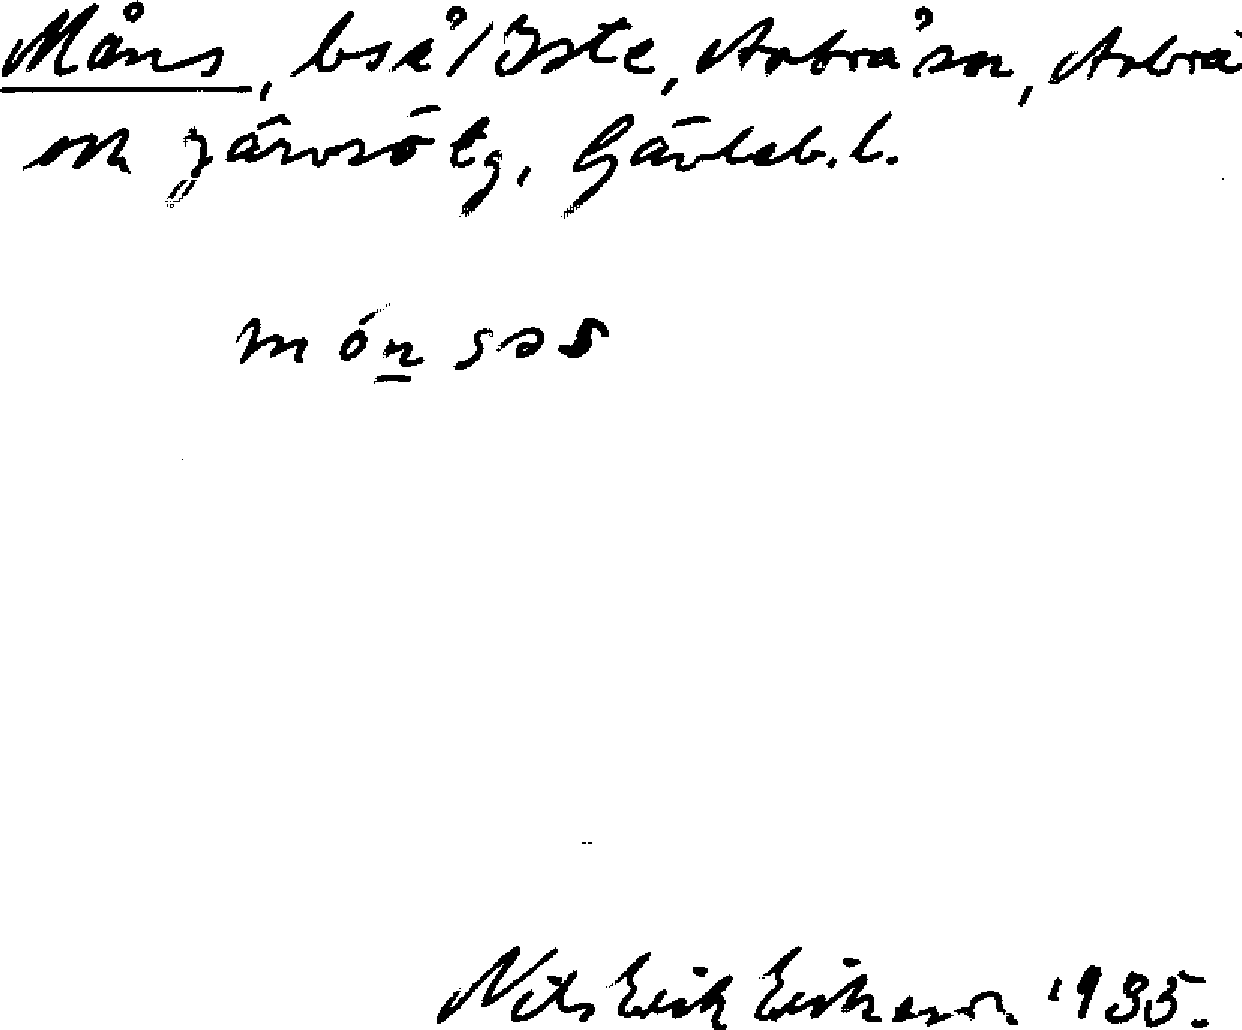 Måns, bså/Iste, Arbrå sn, Arbrå
och Järvsö tg, Gävleb. l.
món səs
Nils Erik Eriksson 1935.